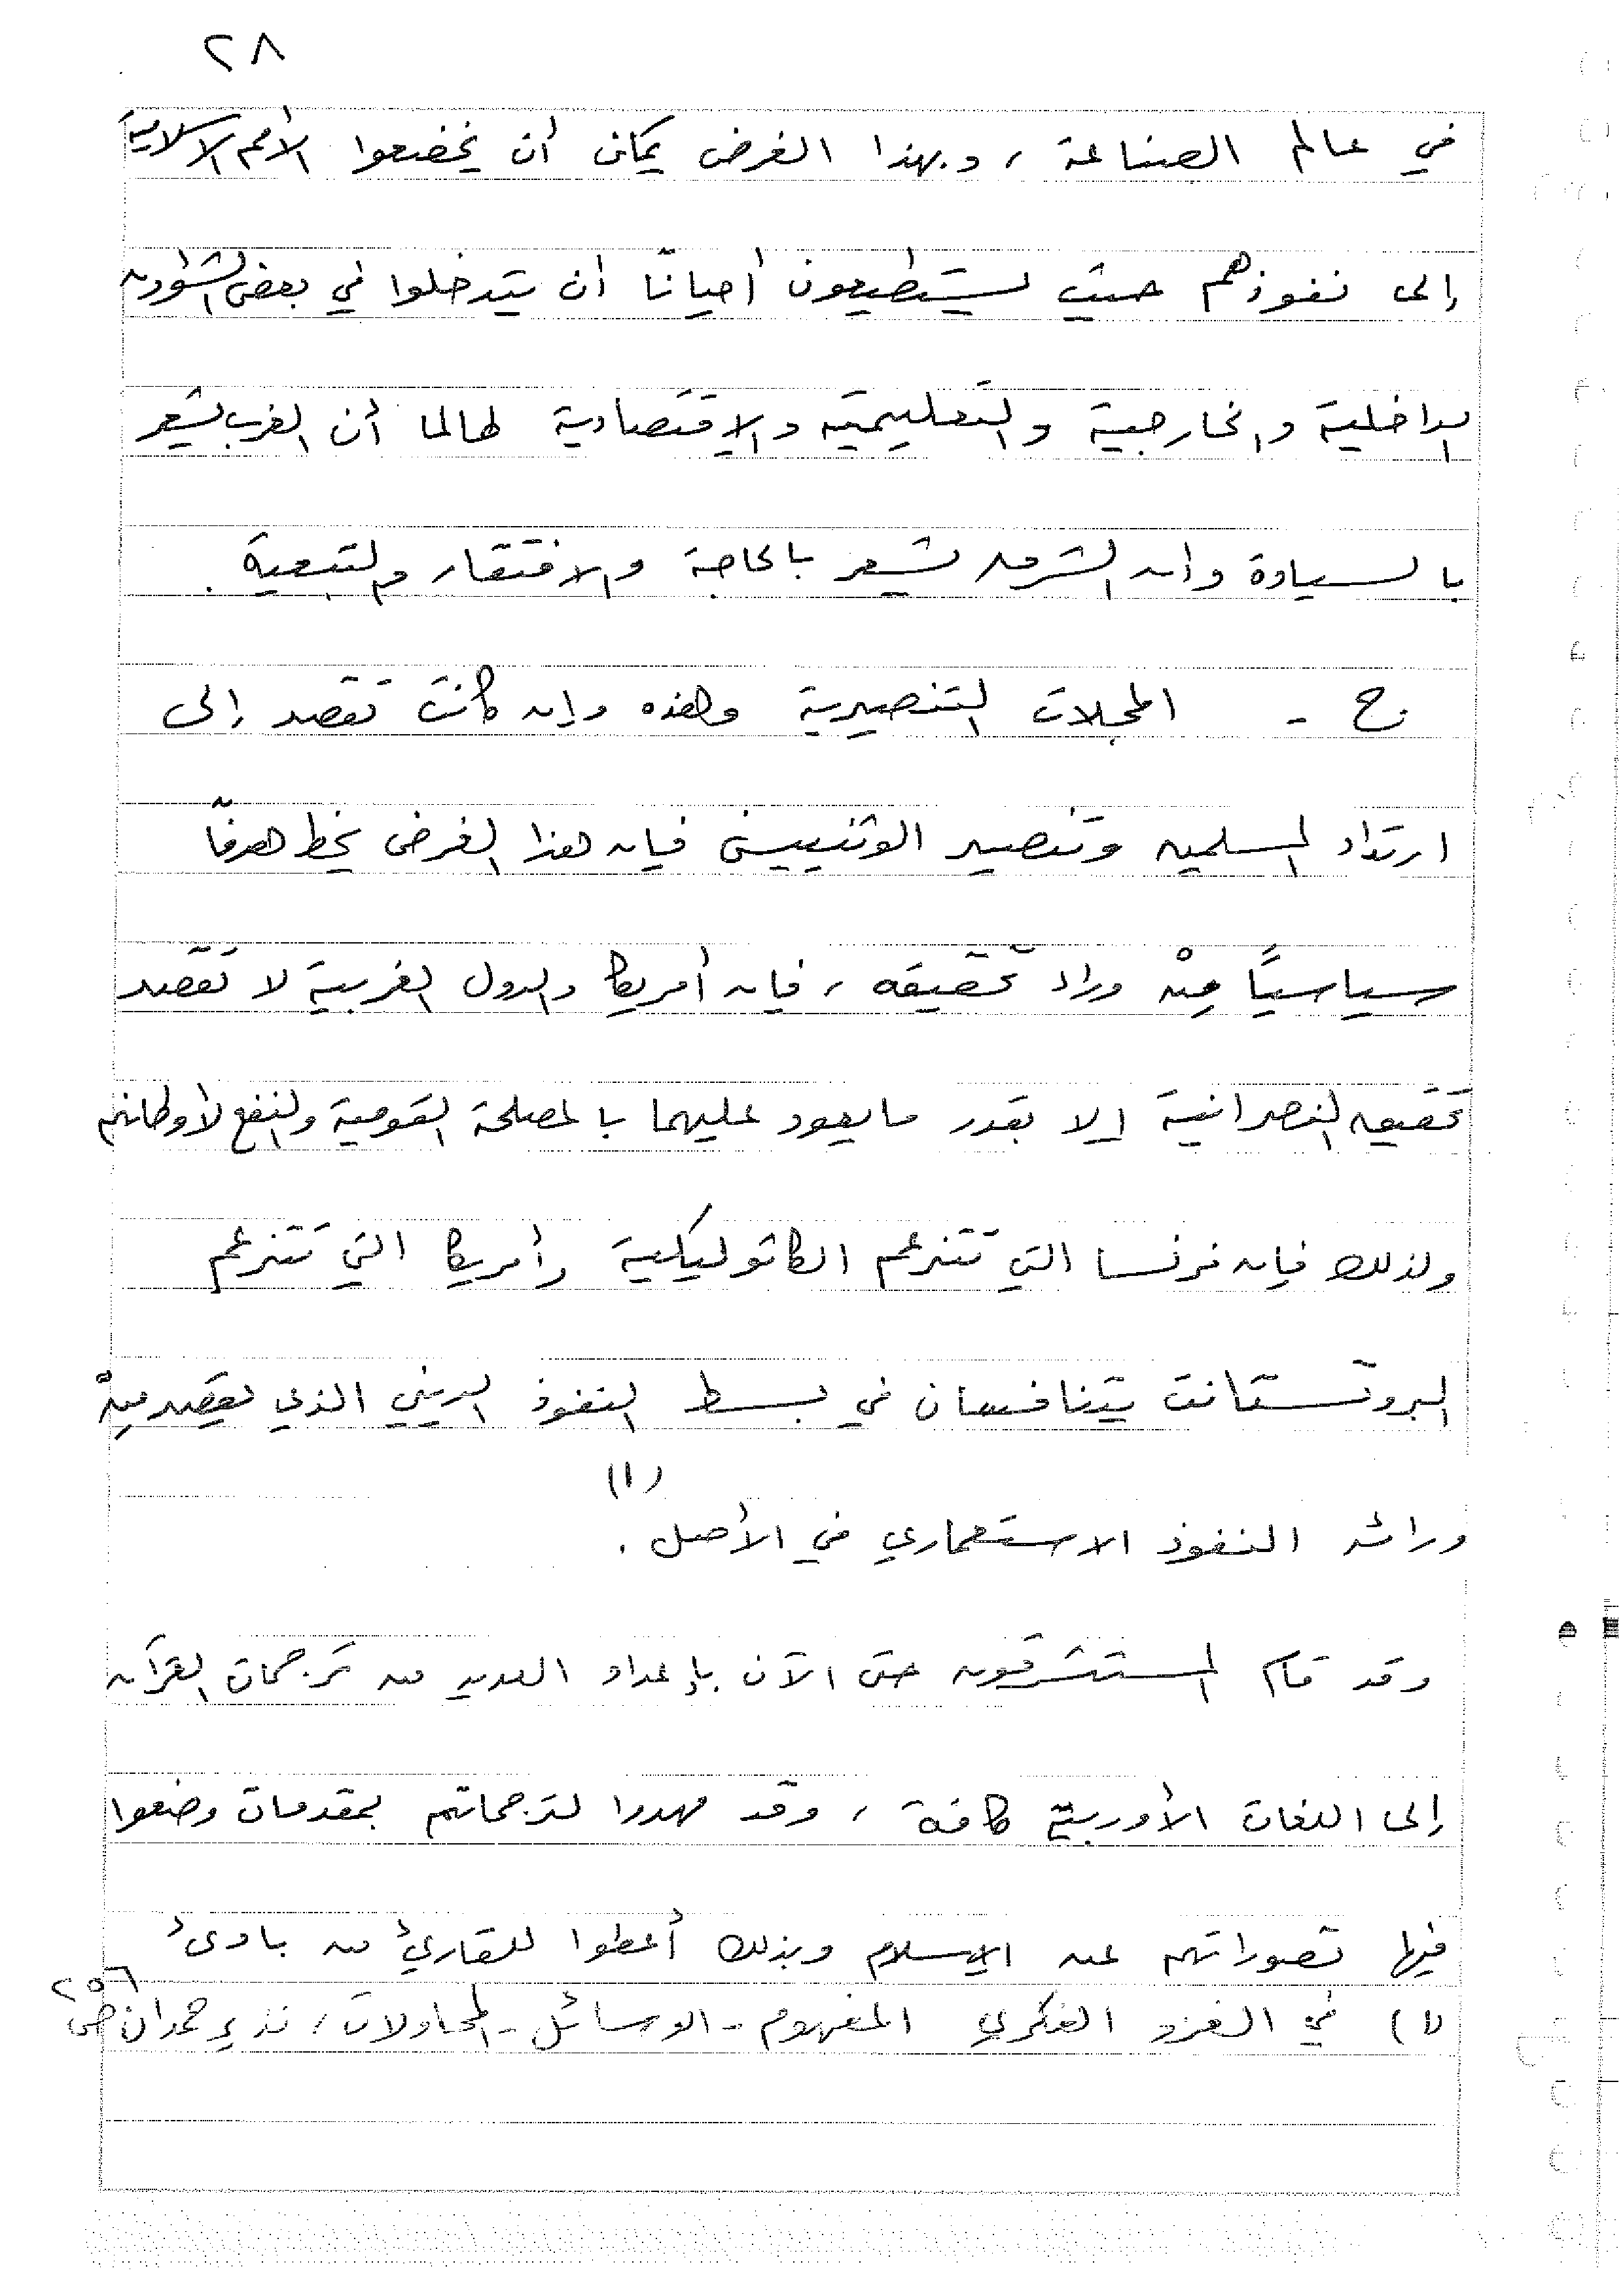 ٢٨
في عالم الصناعة ، وبهذا الغرض يمكن أن يخضعوا الأمم الاسلامية
إلى نفوذهم حيث يستطيعون أحياناً أن يتدخلوا في بعض الشؤون
الداخلية والخارجية والتعليمية والاقتصادية طالما أن الغرب يشعر
بالسيادة وأن الشرق يشعر بالحاجة والافتقار والتبعية .
ح - المجلات التنصيرية وهذه وإن كانت تقصد إلى
ارتداد المسلمين وتنصير الوثنيين فإن هذا الغرض يخط هدفاً
سياسياً مِنْ وراء تحقيقه ، فإن أمريكا والدول الغربية لا تقصد
تحقيق النصرانية إلا بقدر ما يعود عليهما بالمصلحة القومية والنفع لأوطانهم
ولذلك فإن فرنسا التي تتزعم الكاثوليكية وأمريكا التي تتزعم
البروتستانت يتنافسان في بسط النفوذ الديني الذي يقصد مِنْ
(١)
ورائه النفوذ الاستعماري في الأصل .
وقد قام المستشرقون حتى الآن بإعداد العديد من ترجمات القرآن
إلى اللغات الأوربية كافة ، وقد مهدوا لترجماتهم بمقدمات وضعوا
فيها تصوراتهم عن الإسلام وبذلك أعطوا للقارئ من بادئ
(١) في الغزو الفكري المفهوم - الوسائل - المحاولات ، نذير حمدان ص ٢٥٦